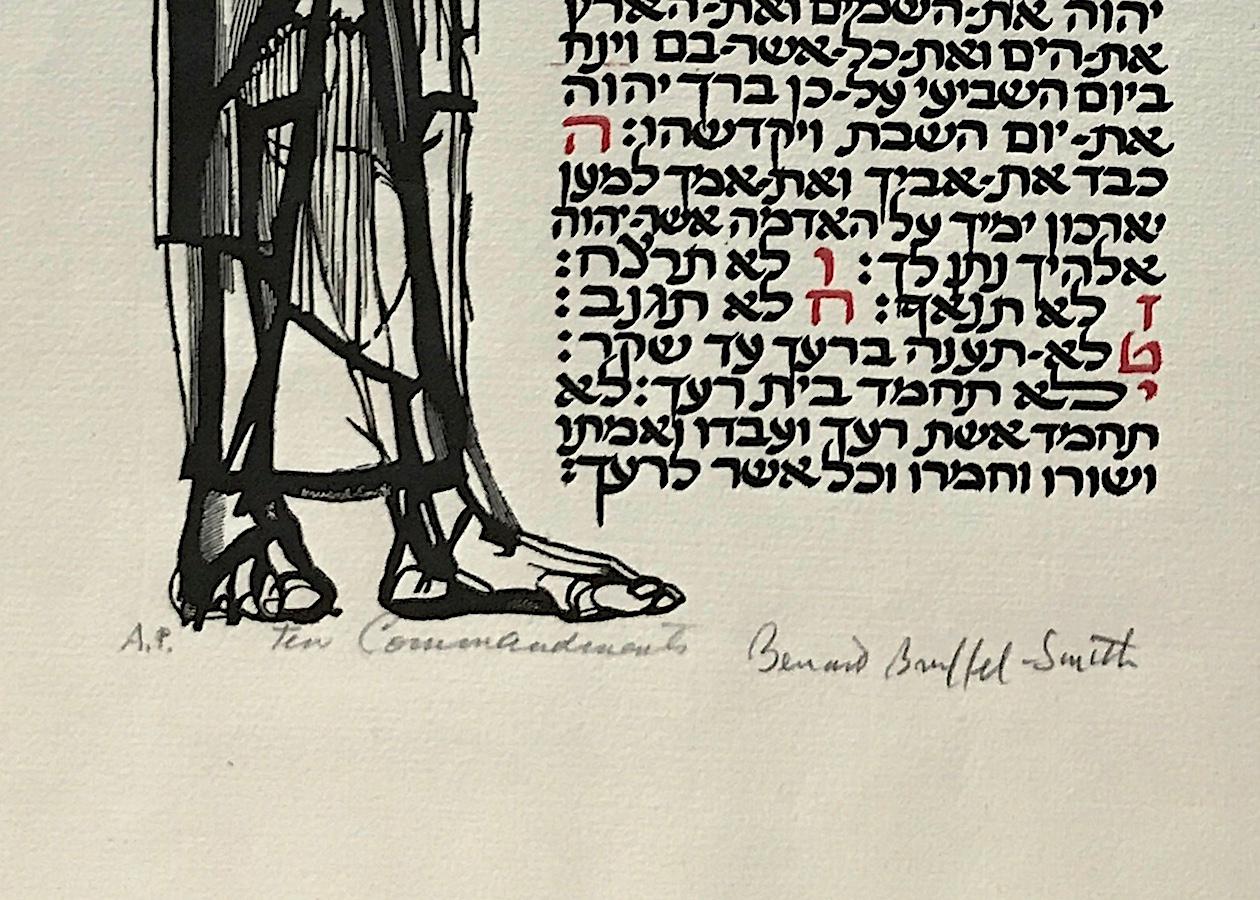 יהוה את-השמים ואת-הארץ
את-הים ואת-כל-אשר-בם וינח
ביום השביעי על-כן ברך יהוה
את-יום השבת ויקדשהו: ה
כבד את-אביך ואת-אמך למען
יארכון ימיך על האדמה אשר-יהוה
אלהיך נתן לך: ו לא תרצח:
ז לא תנאף: ח לא תגנב:
ט לא-תענה ברעך עד שקר:
י לא תחמד בית רעך: לא
תחמד אשת רעך ועבדו ואמתו
ושורו וחמרו וכל אשר לרעך:
A.P. Ten Commandments Bernard Bruffel-Smith